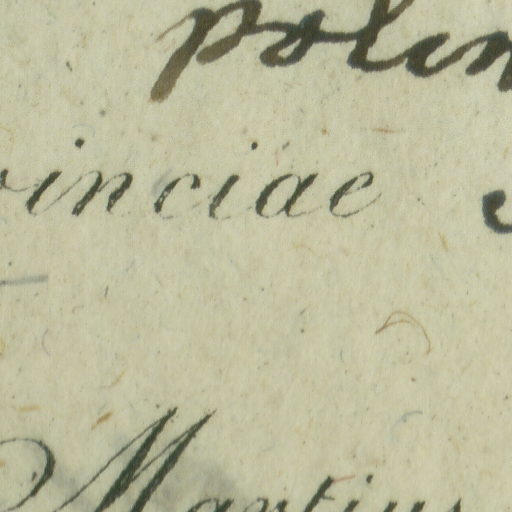 polin
vinciae
Martius